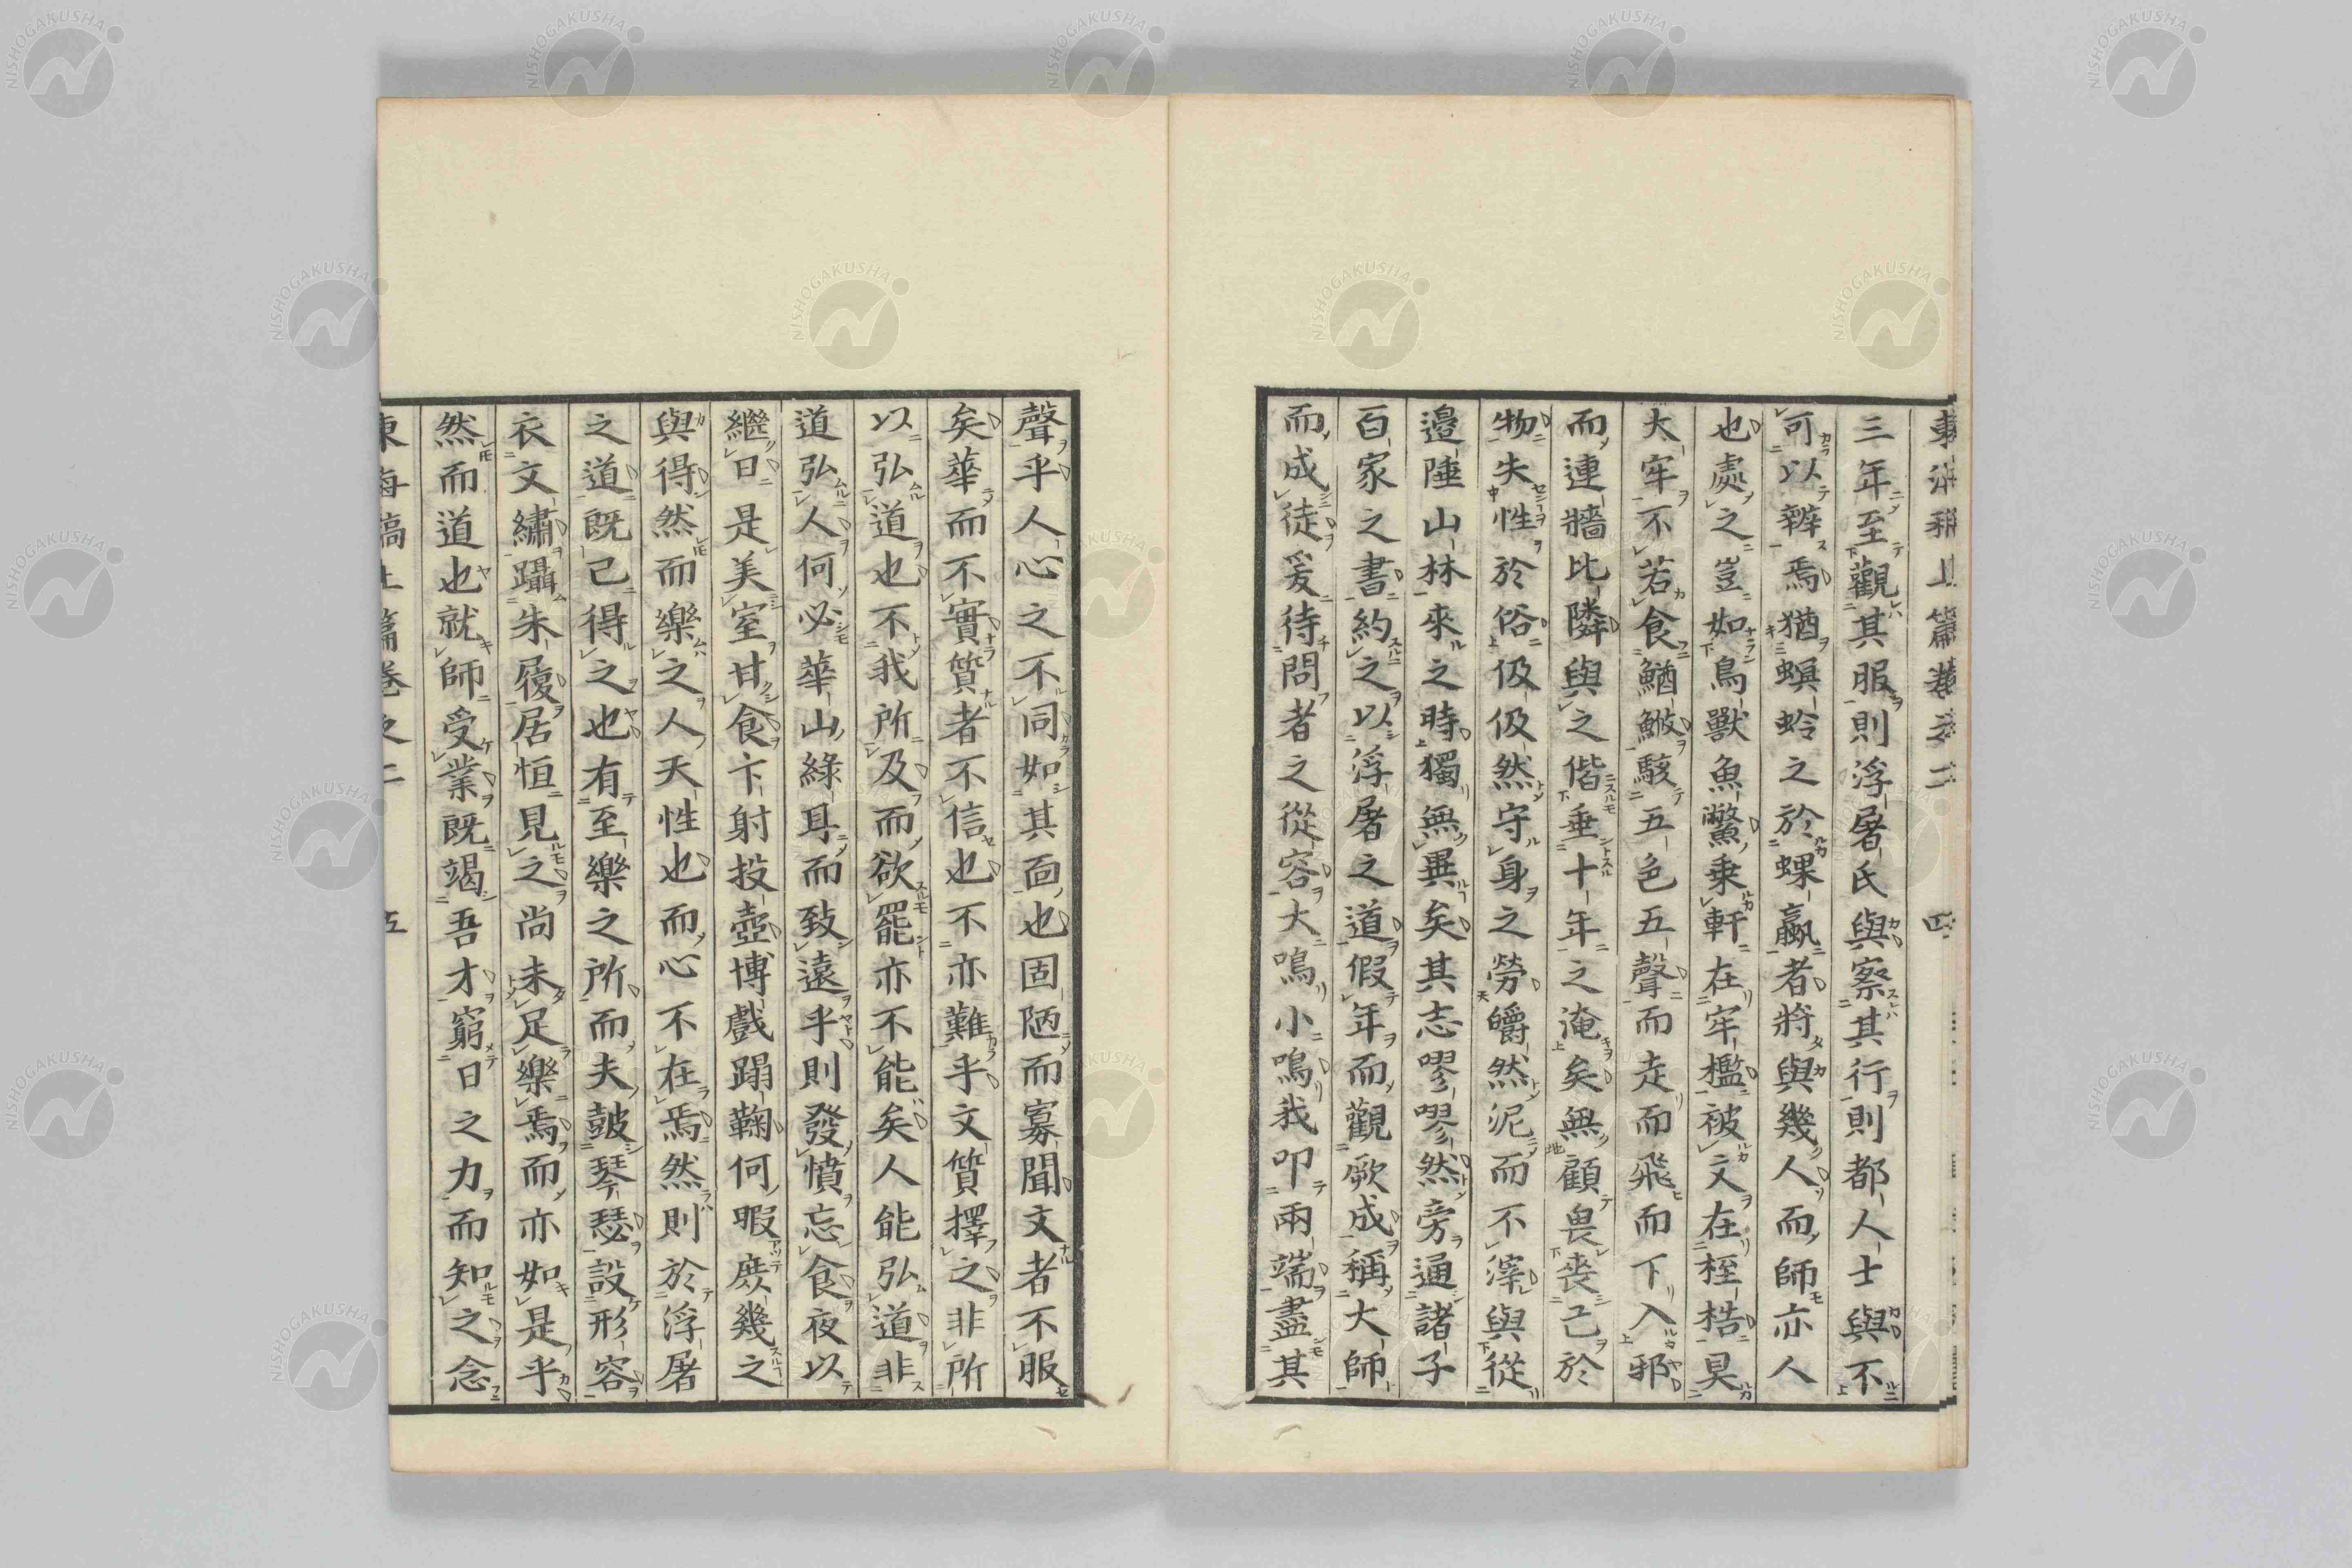 三年至觀其服則浮屠氏與察其行則都人士與不
可以辨焉猶螟蛉之於蜾蠃者將與幾人而師亦人
也處之豈如鳥獸魚鱉乗軒在牢檻被文在桎梏昊
大牢不若食鰌鰷駭五色五聲而走而飛而下入邪
而連牆比隣與之偕垂十年之淹矣無顧畏喪己於
物失性於俗伋伋然守身之勞皭然泥而不滓與從
邉陲山林來之時獨無異矣其志嘐嘐然旁通諸子
百家之書約之以浮屠之道假年而觀厥成稱大師
而成徒爰待問者之從容大鳴小鳴我叩兩端盡其
聲乎人心之不同如其面也固陋而寡聞文者不服
矣華而不實質者不信也不亦難乎文質擇之非所
以弘道也不我所及而欲罷亦不能矣人能弘道非
道弘人何必華山綠耳而致遠乎則發憤忘食夜以
繼日是美室甘食卞射投壺博戲蹋鞠何暇庶幾之
與得然而樂之人天性也而心不在焉然則於浮屠
之道既己得之也有至樂之所而夫鼓琴瑟設形容
衣文繡躡朱履居恒見之尚未足樂焉而亦如是乎
然而道也就師受業既竭吾才窮日之力而知之念